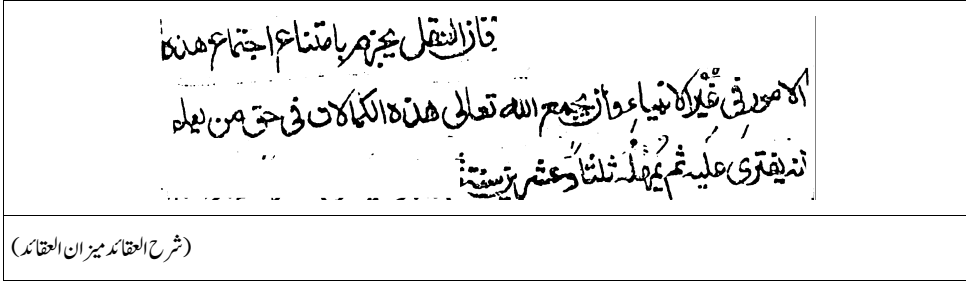 فان العقل يجزم بامتناع اجتماع هذه
الامور فى غَيْر الانبياءِ وأن يجمع الله تعالى هذه الكمالات فى حق من يعلم
انه يفترى عليه ثم يُمهلُه ثلثا وعشرين سنةً
(شرح العقائد میزان العقائد)